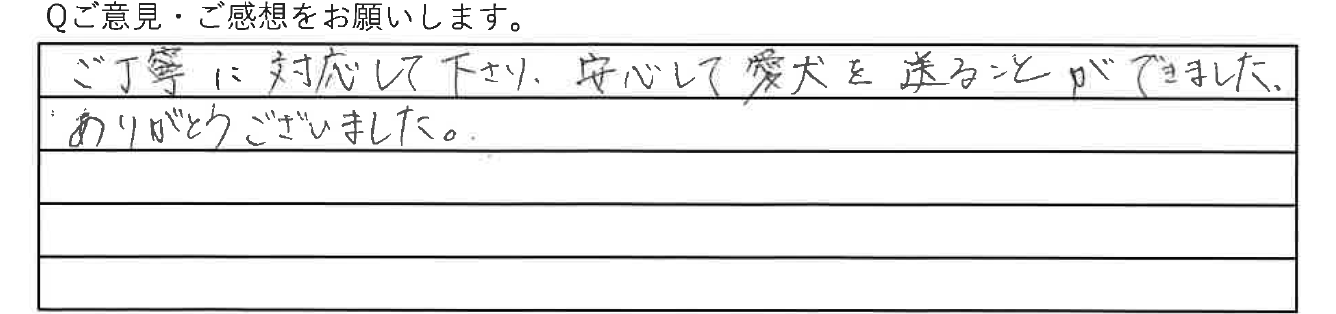 Qご意見・ご感想をお願いします。
ご丁寧に対応して下さり、安心して愛犬を送ることができました。
ありがとうございました。